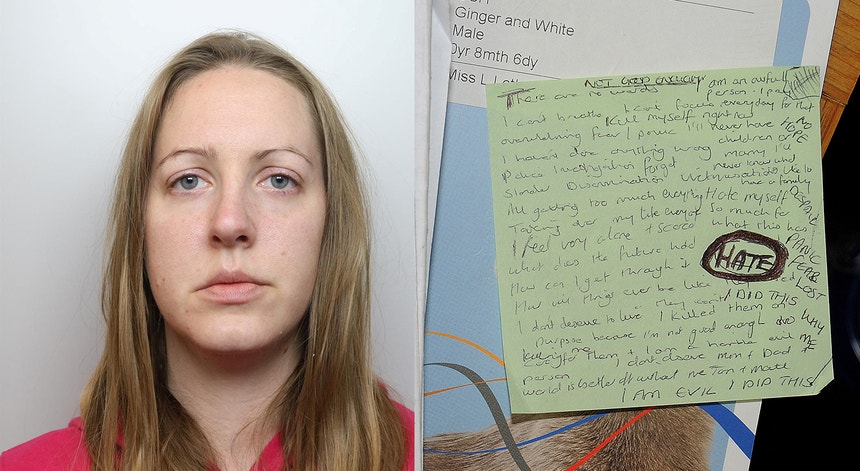 Ginger and White
Male
0yr 8mth 6dy
Miss L
NOT GOOD ENOUGH
There are no words I am an awful person
I can't breathe I can't focus
Kill myself right now
overwhelming fear/panic I'll never have children or
NO
HOPE
I haven't done anything wrong marry I'll
Police investigation forget never know what
Slander Discrimination Victimisation like to have a family
All getting too much everything Hate myself
DESPAIR
Taking over my life everyday so much for what this has
I feel very alone + scared
PANIC
What does the future hold
HATE
FEAR
How can I get through it
LOST
How will things ever be like
I DID THIS
I don't deserve to live I killed them on
purpose because I'm not good enough
WHY
ME
care for them + I am a horrible evil
person I don't deserve Mum + Dad +
world is better off without me
I AM EVIL I DID THIS